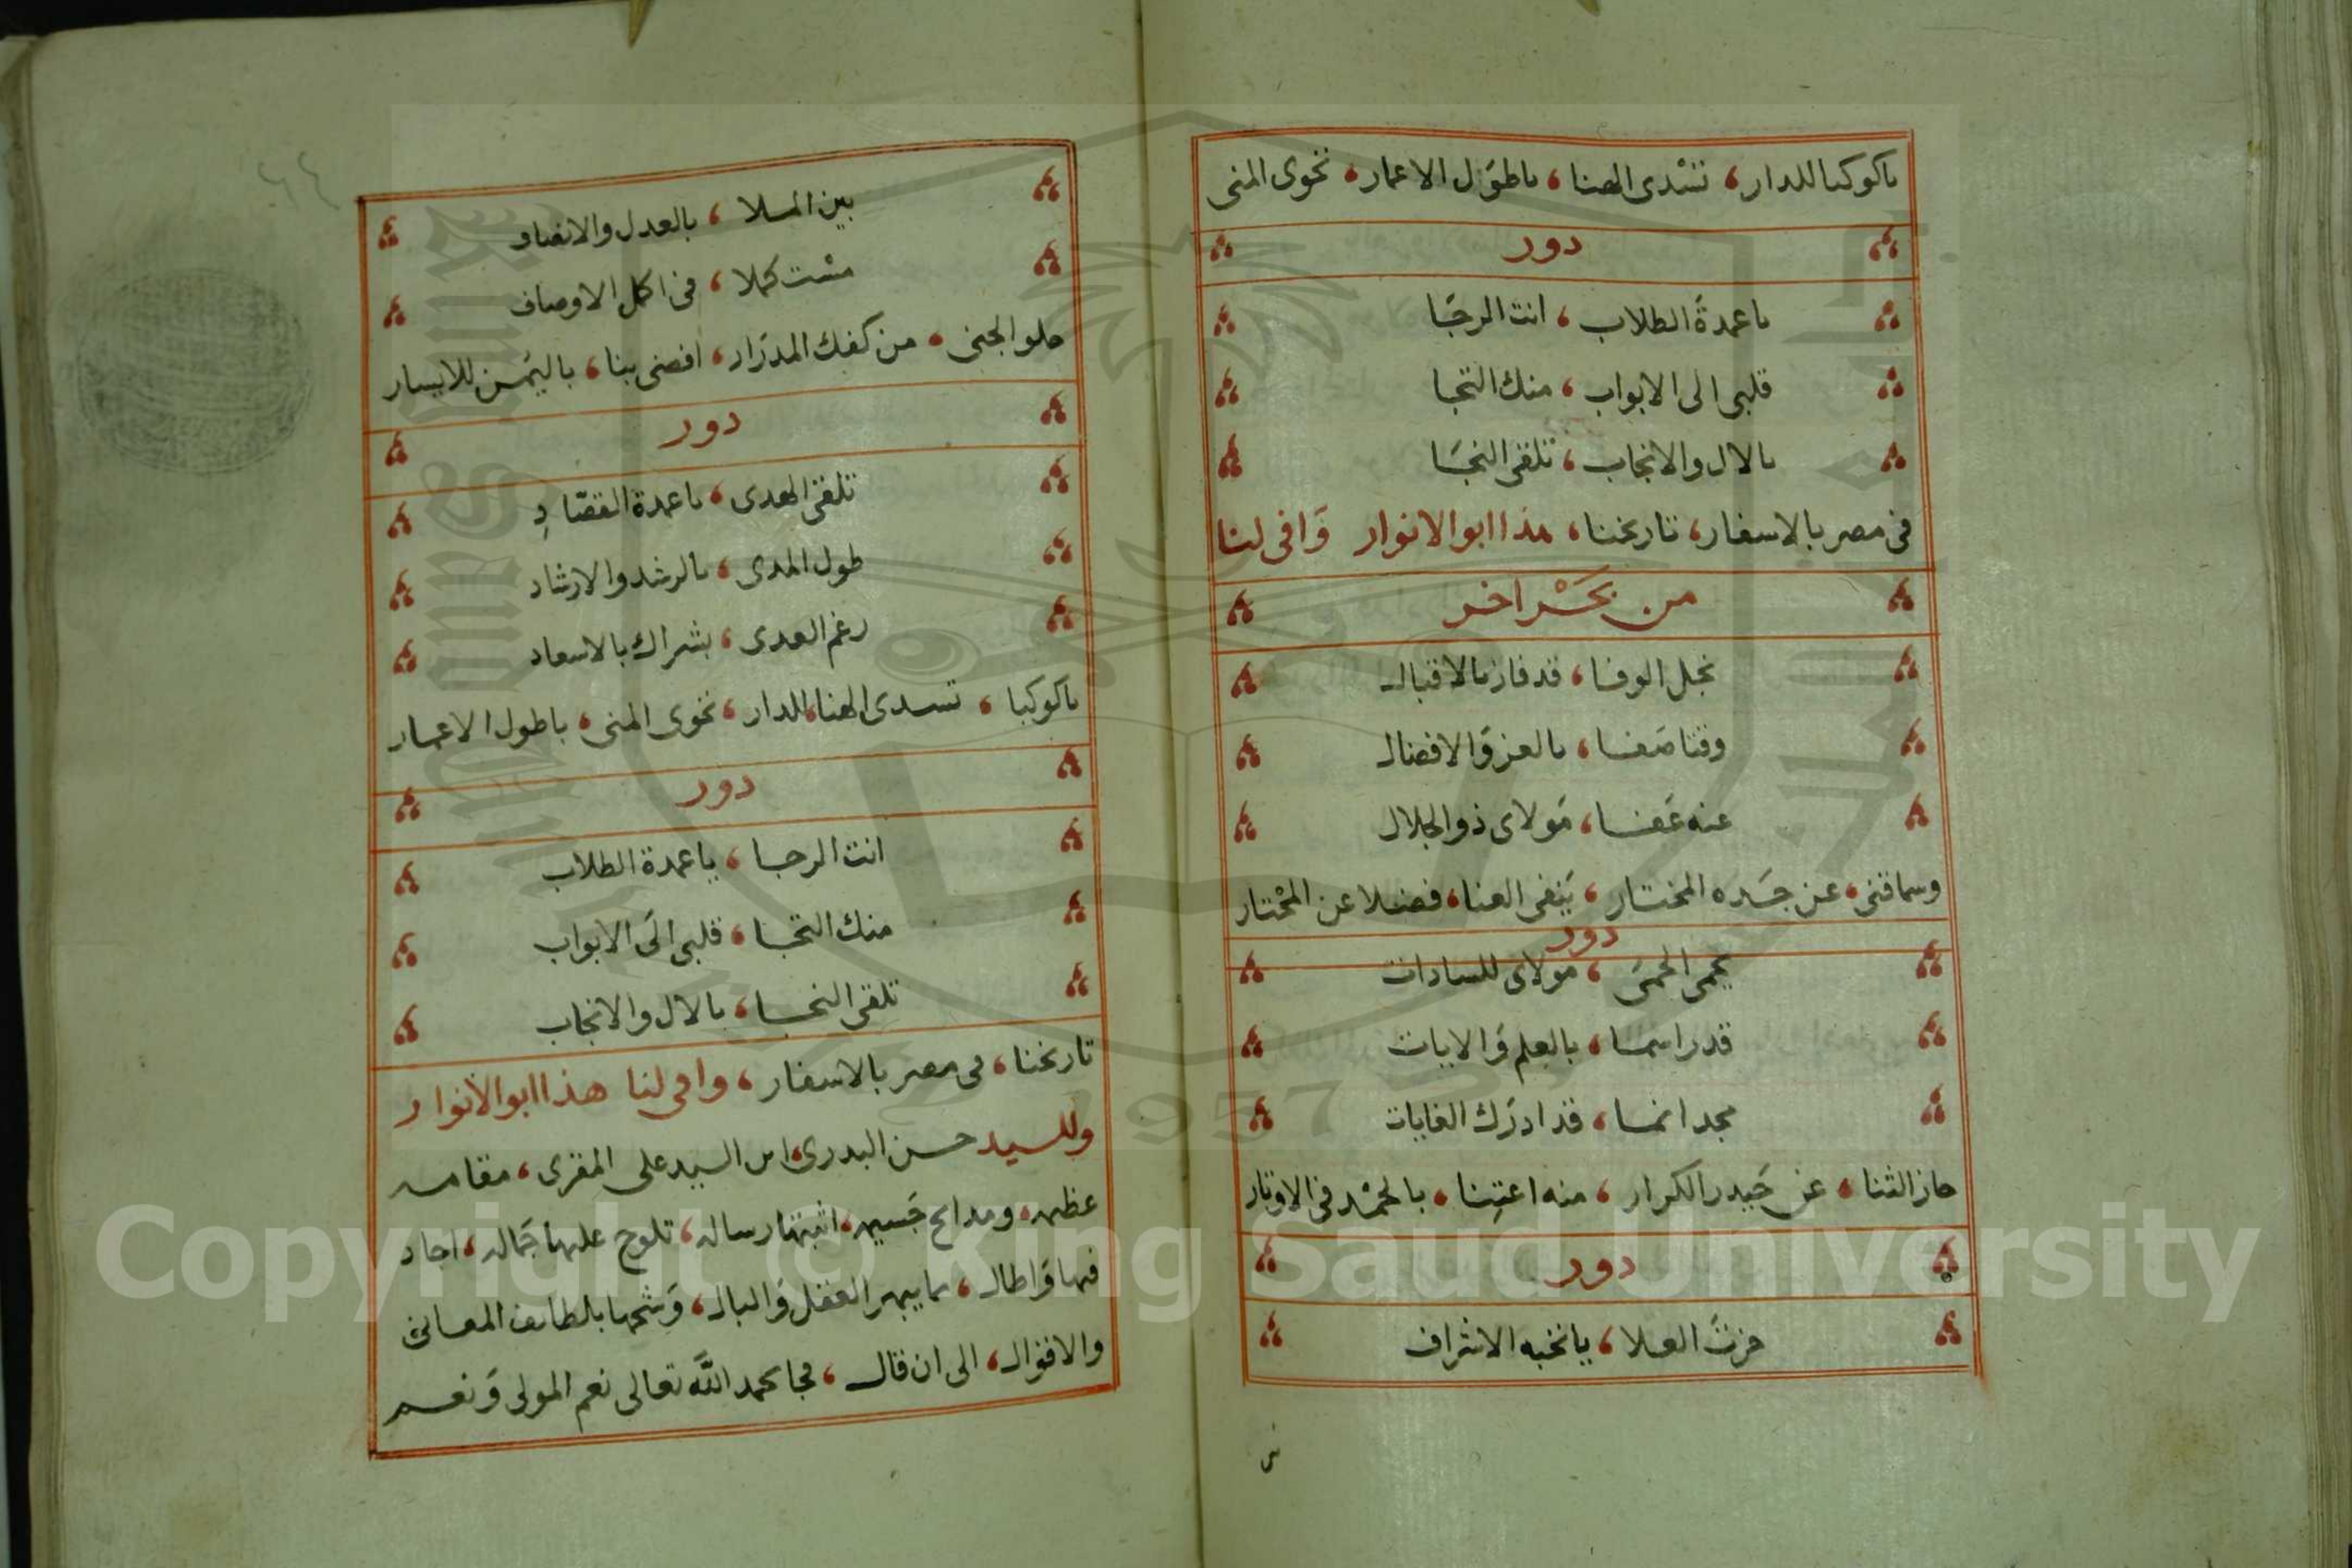 ياكوكبا للدار، تسْدى الهنا، ياطوَل الاعمار، تحوى المنى
دور
ياعمدةَ الطلاب، انت الرجَا
قلبى الى الابواب، منك التجا
بالال والانجاب، تلقى النجَا
فى مصر بالاسفار، تاريخنا، هذا ابو الانوار وَافى لنا
من بَحْر اخر
نجل الوفا، قد فاز بالاقبال
وقتا صَفا، بالعز وَالافضال
عنه عَفا، مَولاى ذو الجلال
وسما قنى، عن جَده المختار، يَنفى العنا، فضلا عن المحْتار
دور
يحمى الحمىَ، مَولاى للسادات
قدرا سما، بالعلم وَالايات
مجدا نما، قد ادرَك الغايات
حاز الثنا، عن حَيدر الكرار، منه اعتِنا، بالحمْد فى الاوتار
دور
حزتَ العلا، يانخبه الاشراف
بين الملا، بالعدل والانصاف
مسْت كملا، فى اكمل الاوصاف
حلو الجنى، من كفك المدرَار، افضى بنا، باليمَن للايسار
دور
تلقى الهدى، ياعمدة القصّادِ
طول المدى، بالرشد والارشاد
رغم العدى، بشراك بالاسعاد
ياكوكبا، تسدى الهنا للدار، تحوى المنى، ياطول الاعمار
دور
انت الرجا، ياعمدة الطلاب
منك التجا، قلبى الَى الابواب
تلقى النجا، بالال والانجاب
تاريخنا، فى مصر بالاسفار، وافى لنا هذا ابو الانوار
وللسيد حسن البدرى ابن السيد على المقرى، مقامه
عظيمه، ومدايح جَسيمه، اثبتها رساله، تلوح عليها جَماله، اجاد
فيها وَاطال، بما يبهر العقل وَالبال، وَشحها بلطايف المعانى
والاقوال، الى ان قال، فجا بحمد اللّه تعالى نعم المولى وَنعم
Copyright © King Saud University
1957